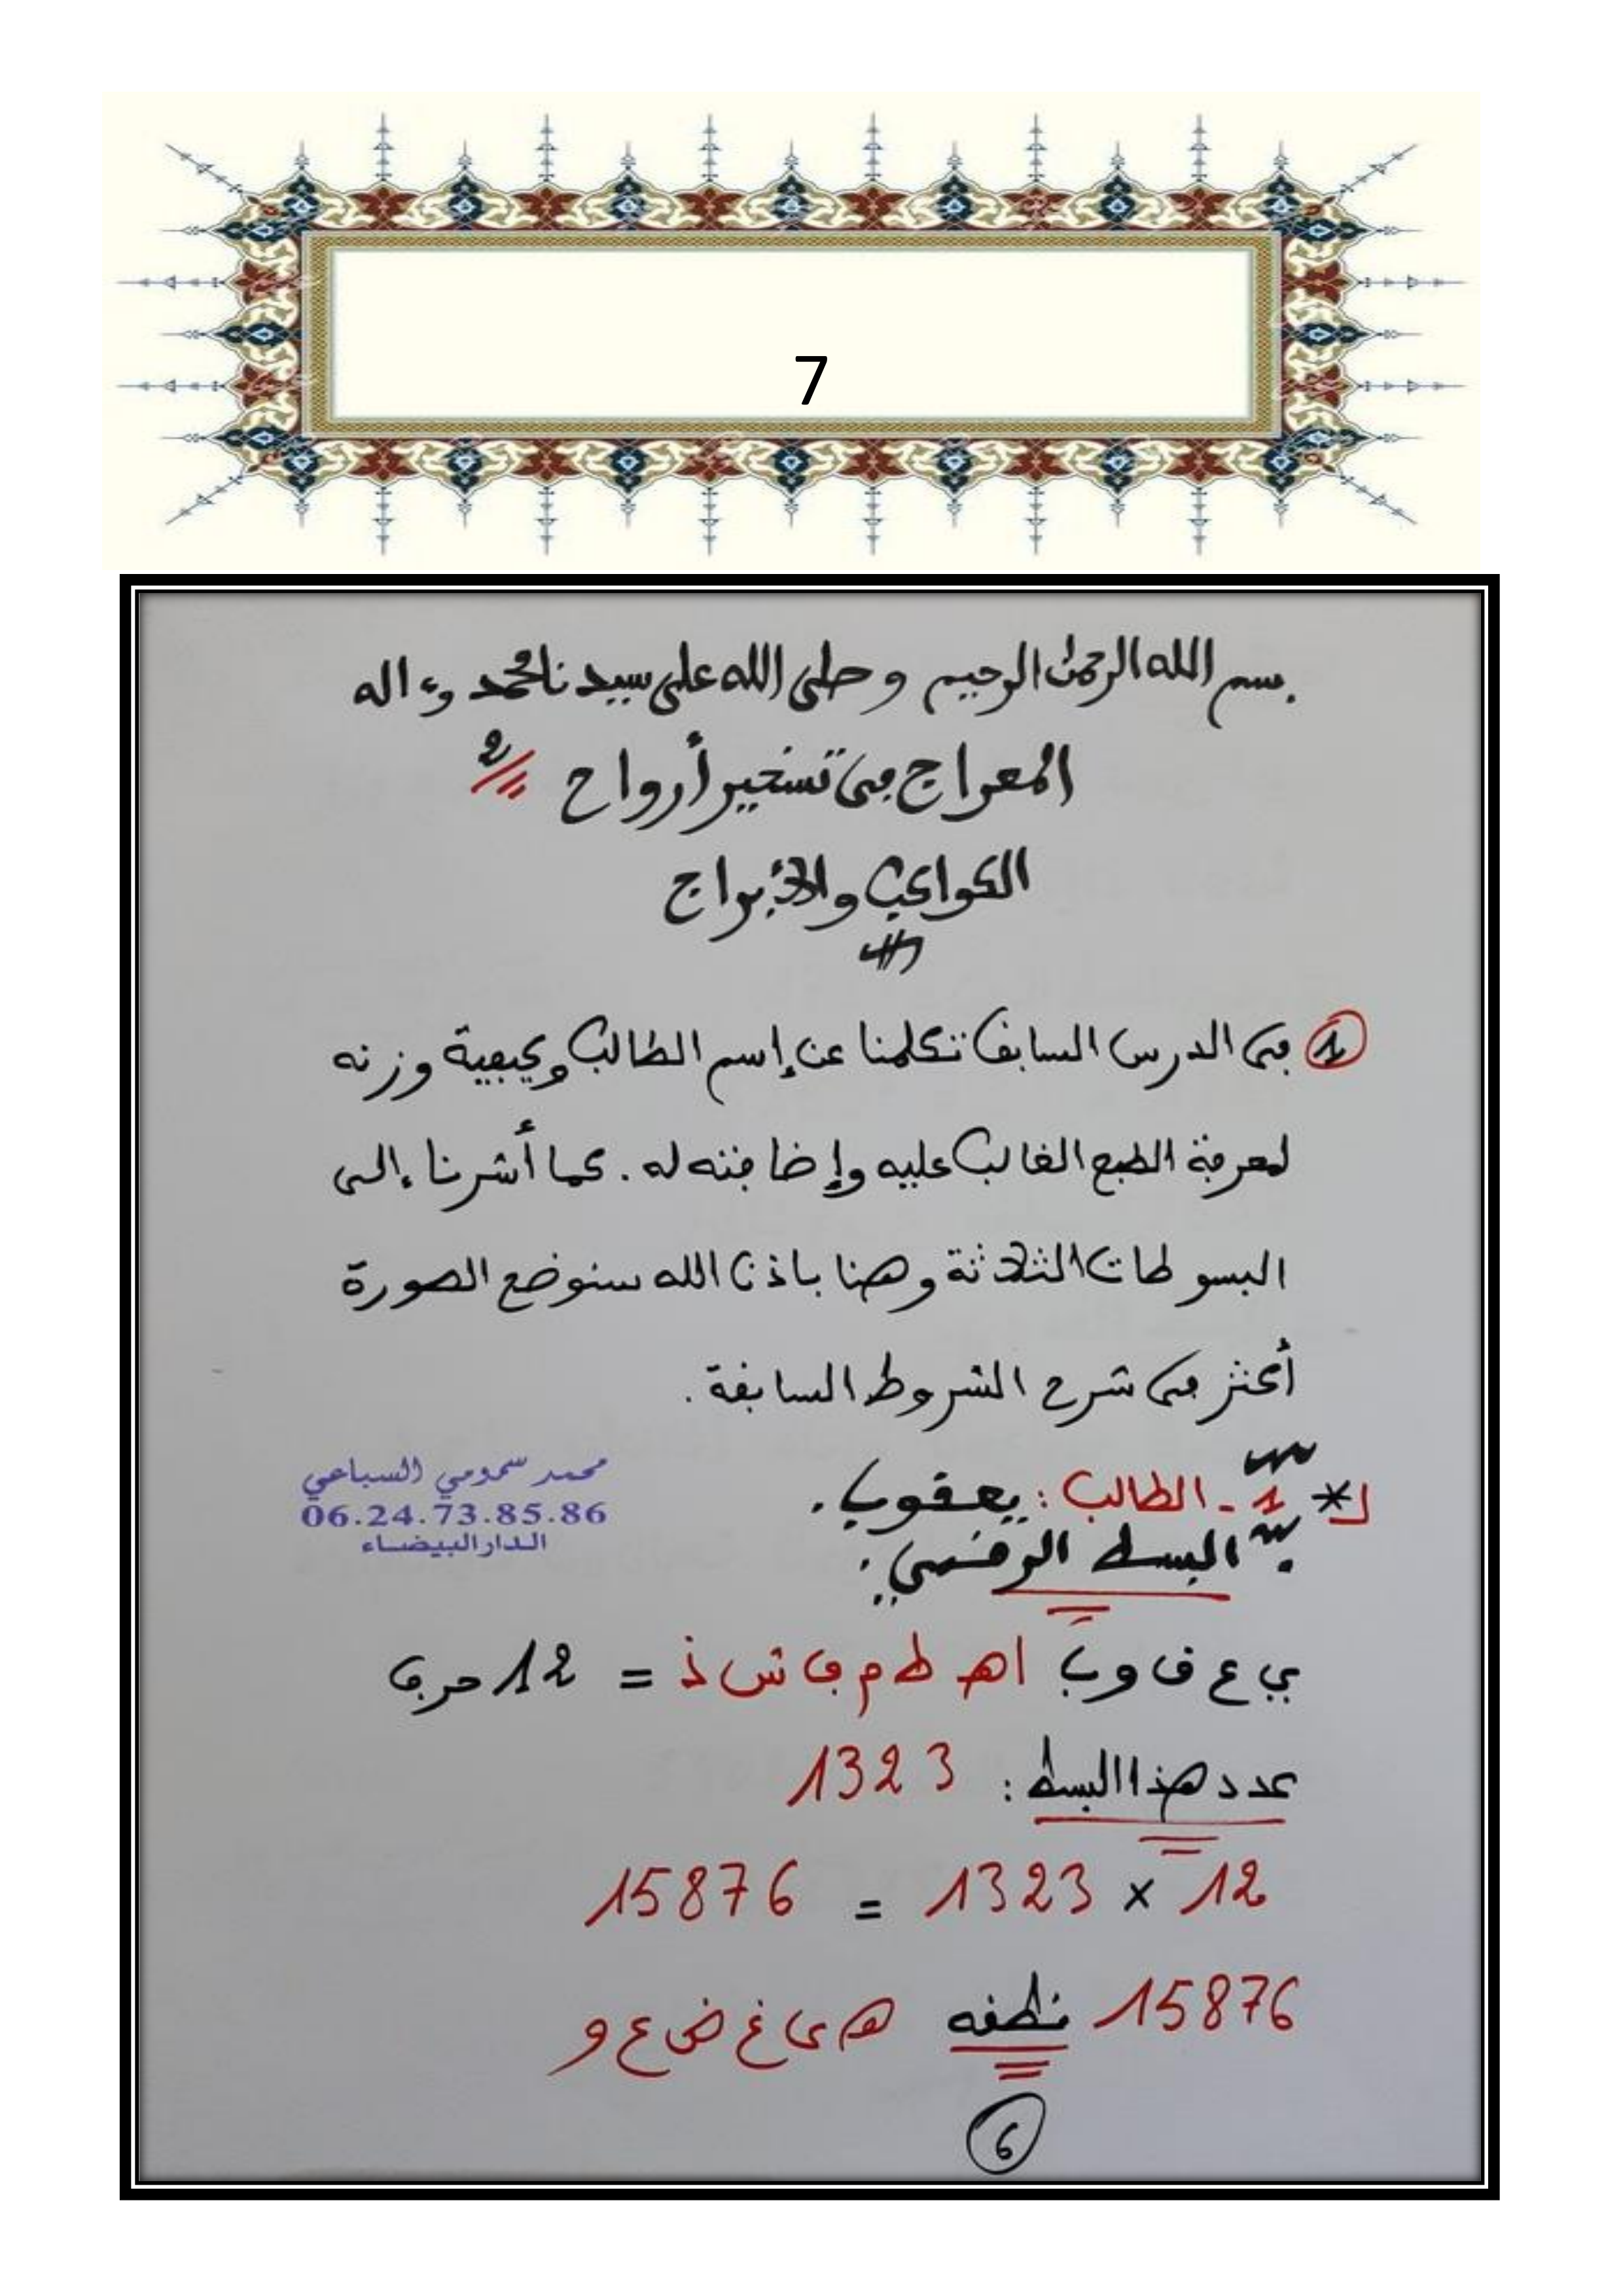 7
بسم الله الرحمن الرحيم وصلى الله على سيدنا محمد وءاله
المعراج في تسخير أرواح 2
الكواكب والأبراج
1 في الدرس السابق تكلمنا عن إسم الطالب وكيفية وزنه
لمعرفة الطبع الغالب عليه وإضافته له. كما أشرنا إلى
البسوطات الثلاثة وهنا باذن الله سنوضع الصورة
أكثر في شرح الشروط السابقة.
1 - الطالب : يعقوب.
محمد سمومي السباعي
06.24.73.85.86
الدار البيضاء
البسط الرقمي :
ي ع ق و ب ا هـ ط م ف ش ذ = 12 حرف
عدد هذا البسط : 1323
12 × 1323 = 15876
15876 نطقه هـ ي غ ض ع و
6